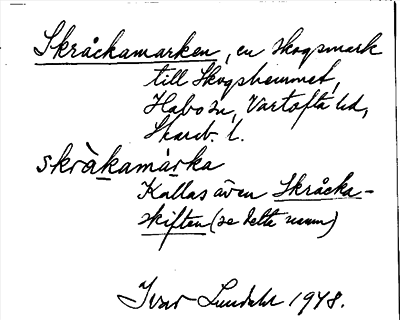 Skråckamarken, en skogsmark
till Skogshemmet,
Habo sn, Vartofta hd,
Skarab. l.
skråkamàrka
Kallas även Skråcka-
skiften (se detta namn)
Ivar Lundahl 1948.